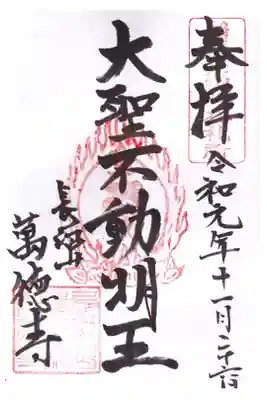 奉拝
令和元年十一月二十六日
大聖不動明王
長栄山
萬徳寺